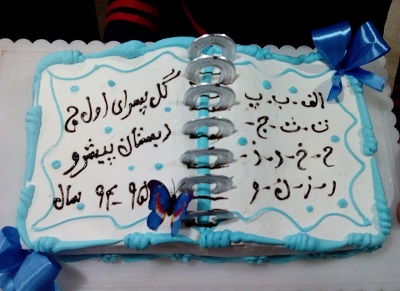 الف - ب - پ
ت - ث - ج -
ح - خ - د - ذ -
ر - ز - ل - و
گل پسرای اول ج
دبستان پیشرو
سال ۹۴-۹۵